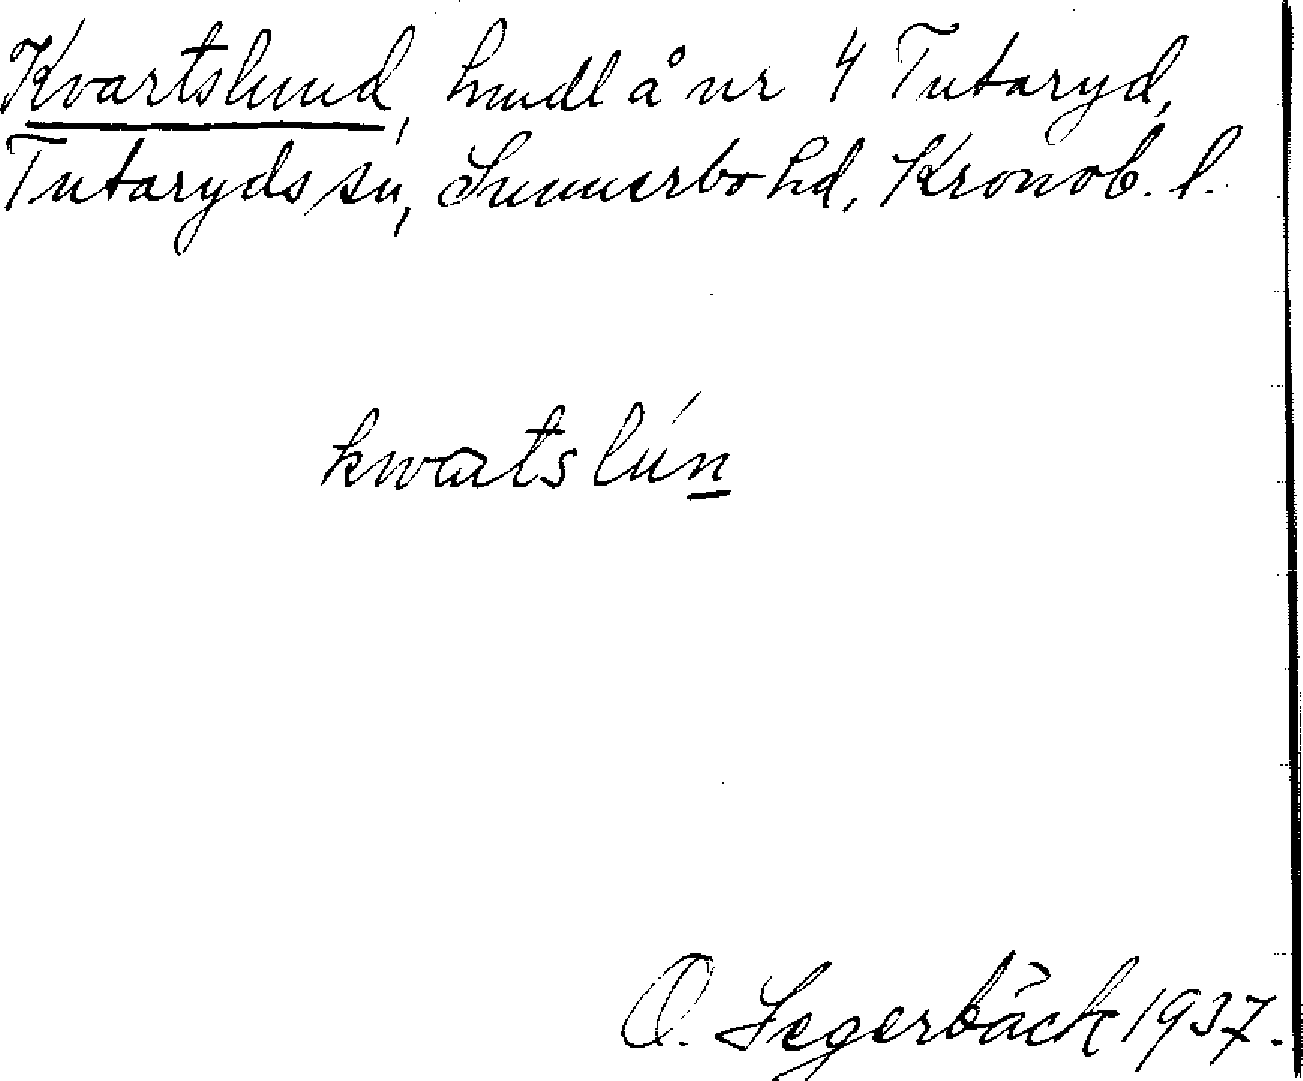 Kvartslund, hmdl å nr 4 Tutaryd,
Tutaryds sn, Sunnerbo hd, Kronob. l.
kwatslún
O. Segerbäck 1937.